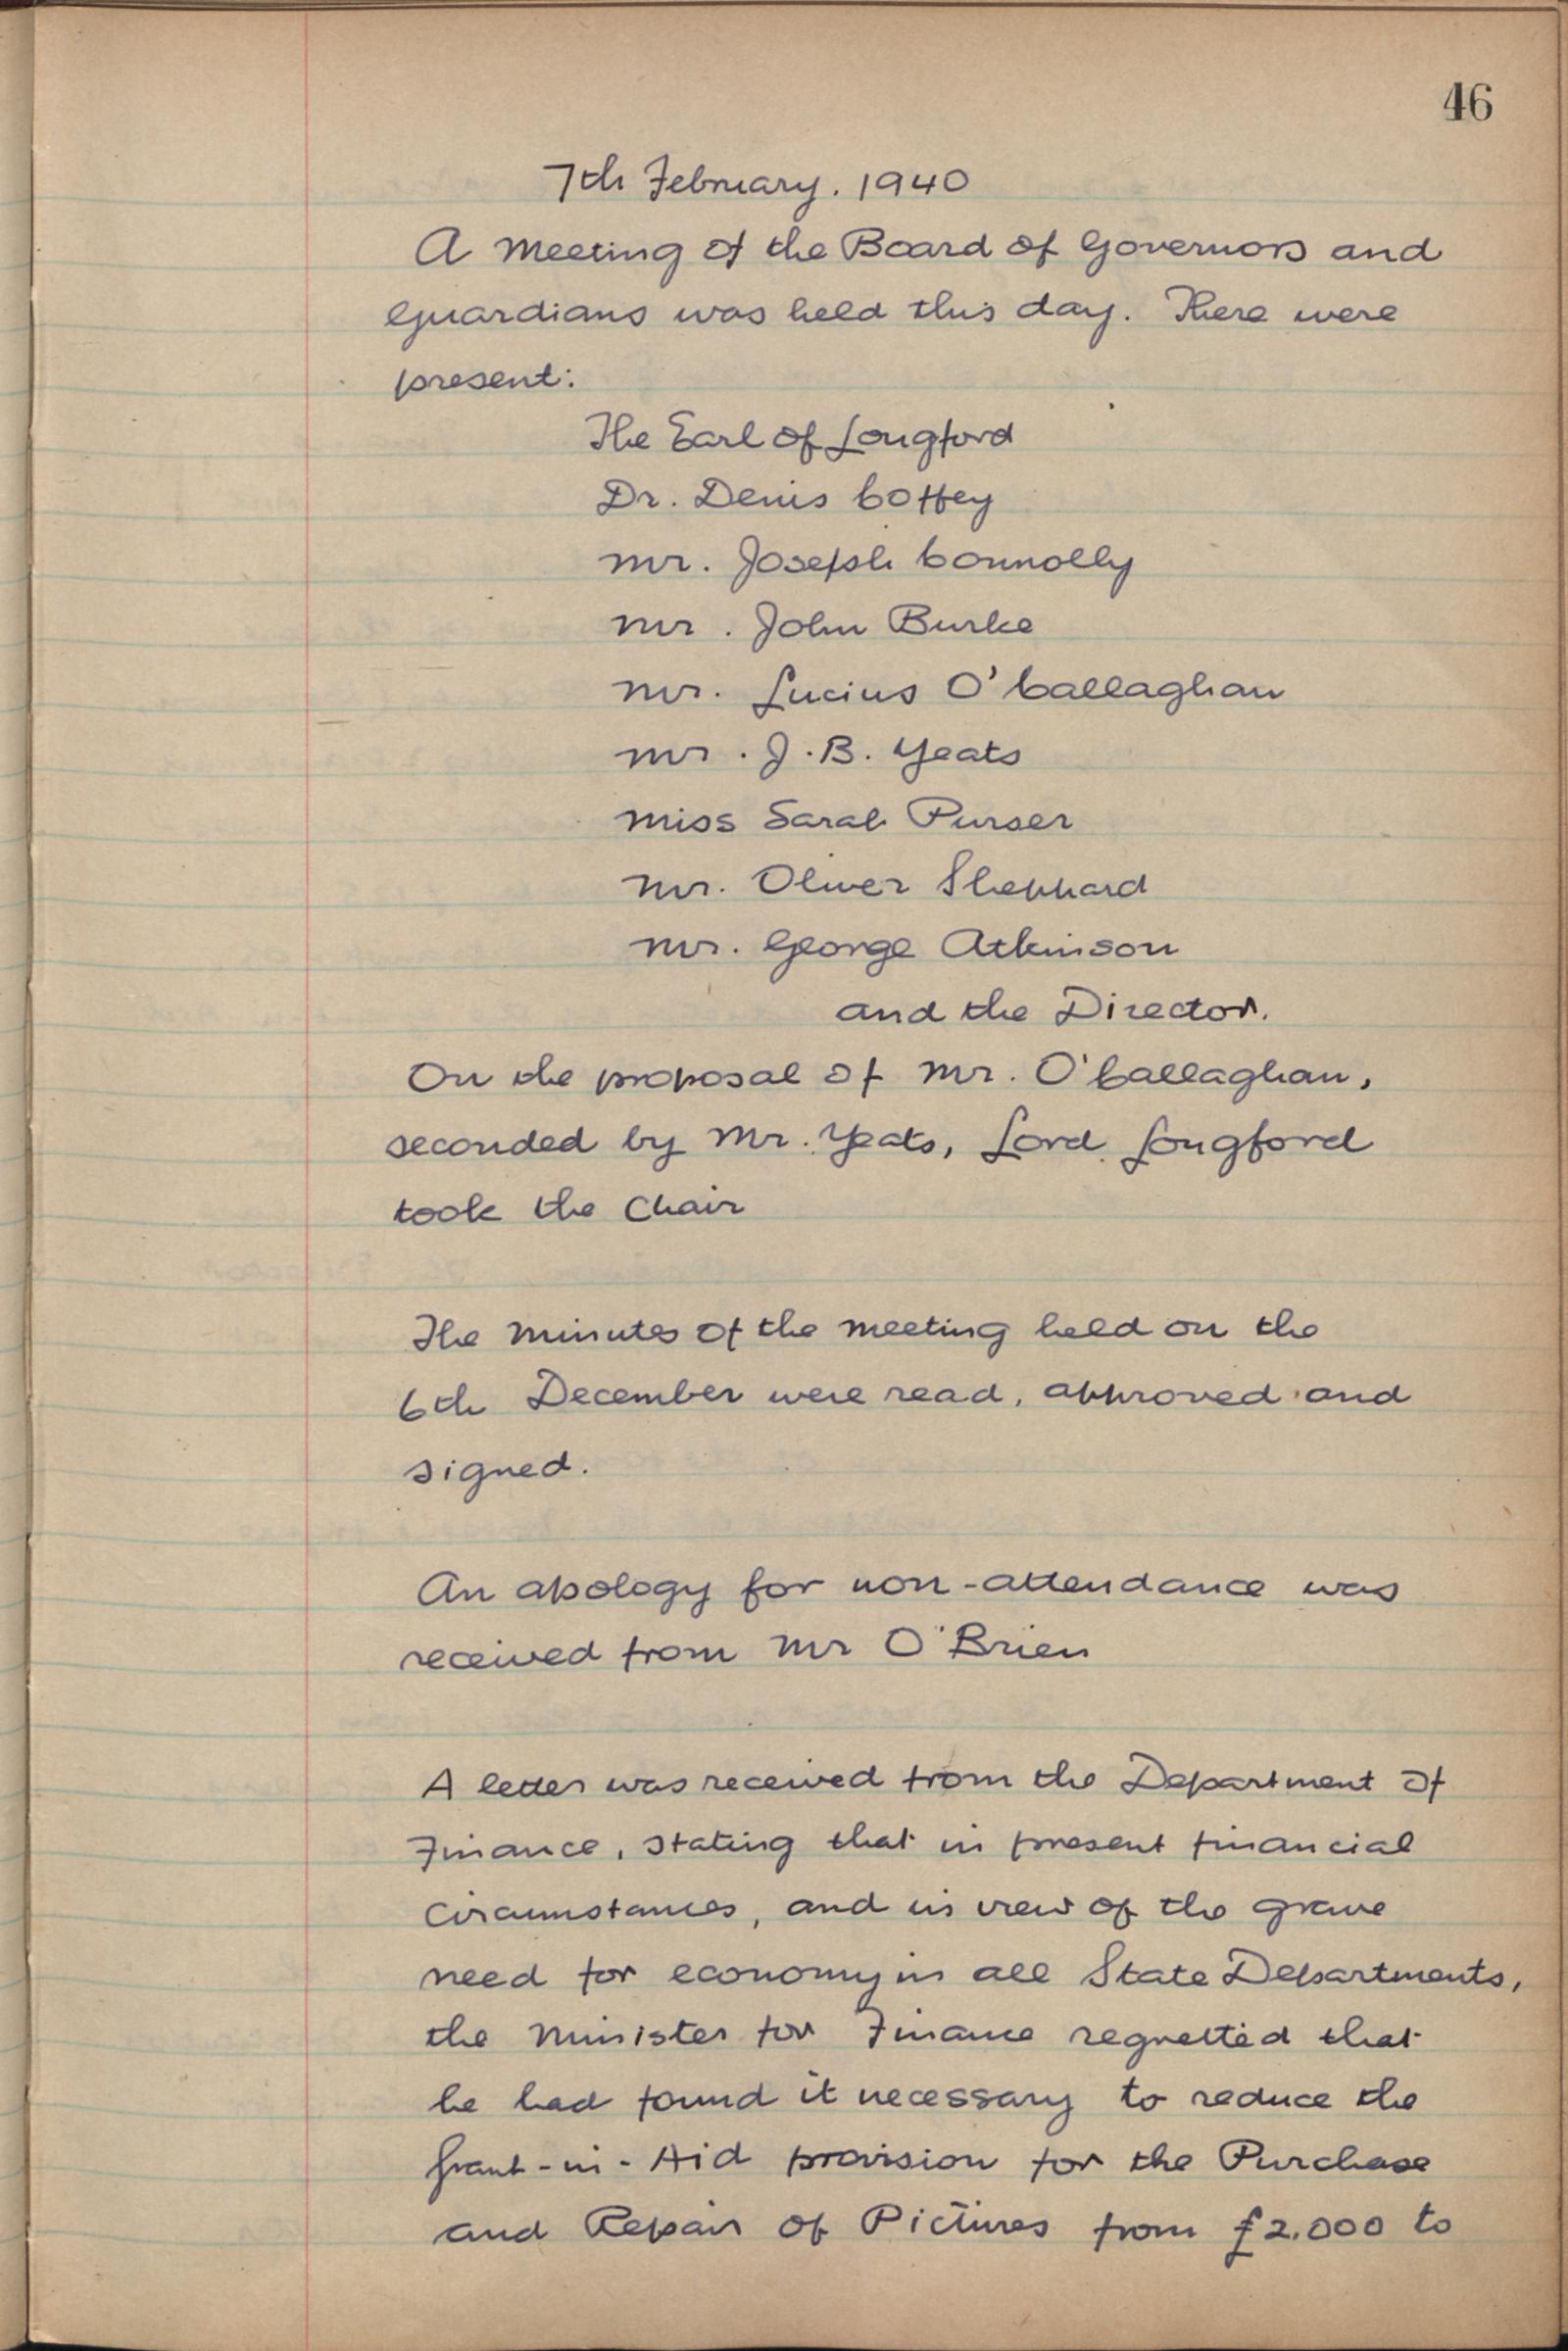 46
7th February. 1940
A Meeting of the Board of Governors and
Guardians was held this day. There were
present:
The Earl of Longford
Dr. Denis Coffey
Mr. Joseph Connolly
Mr. John Burke
Mr. Lucius O'Callaghan
Mr. J.B. Yeats
Miss Sarah Purser
Mr. Oliver Sheppard
Mr. George Atkinson
and the Director.
On the proposal of Mr. O'Callaghan,
seconded by Mr. Yeats, Lord Longford
took the Chair
The Minutes of the Meeting held on the
6th December were read, approved and
signed.
An apology for non-attendance was
received from Mr O'Brien
A letter was received from the Department of
Finance, stating that in present financial
circumstances, and in view of the grave
need for economy in all State Departments,
the Minister for Finance regretted that
he had found it necessary to reduce the
Grant-in-Aid provision for the Purchase
and Repair of Pictures from £2.000 to